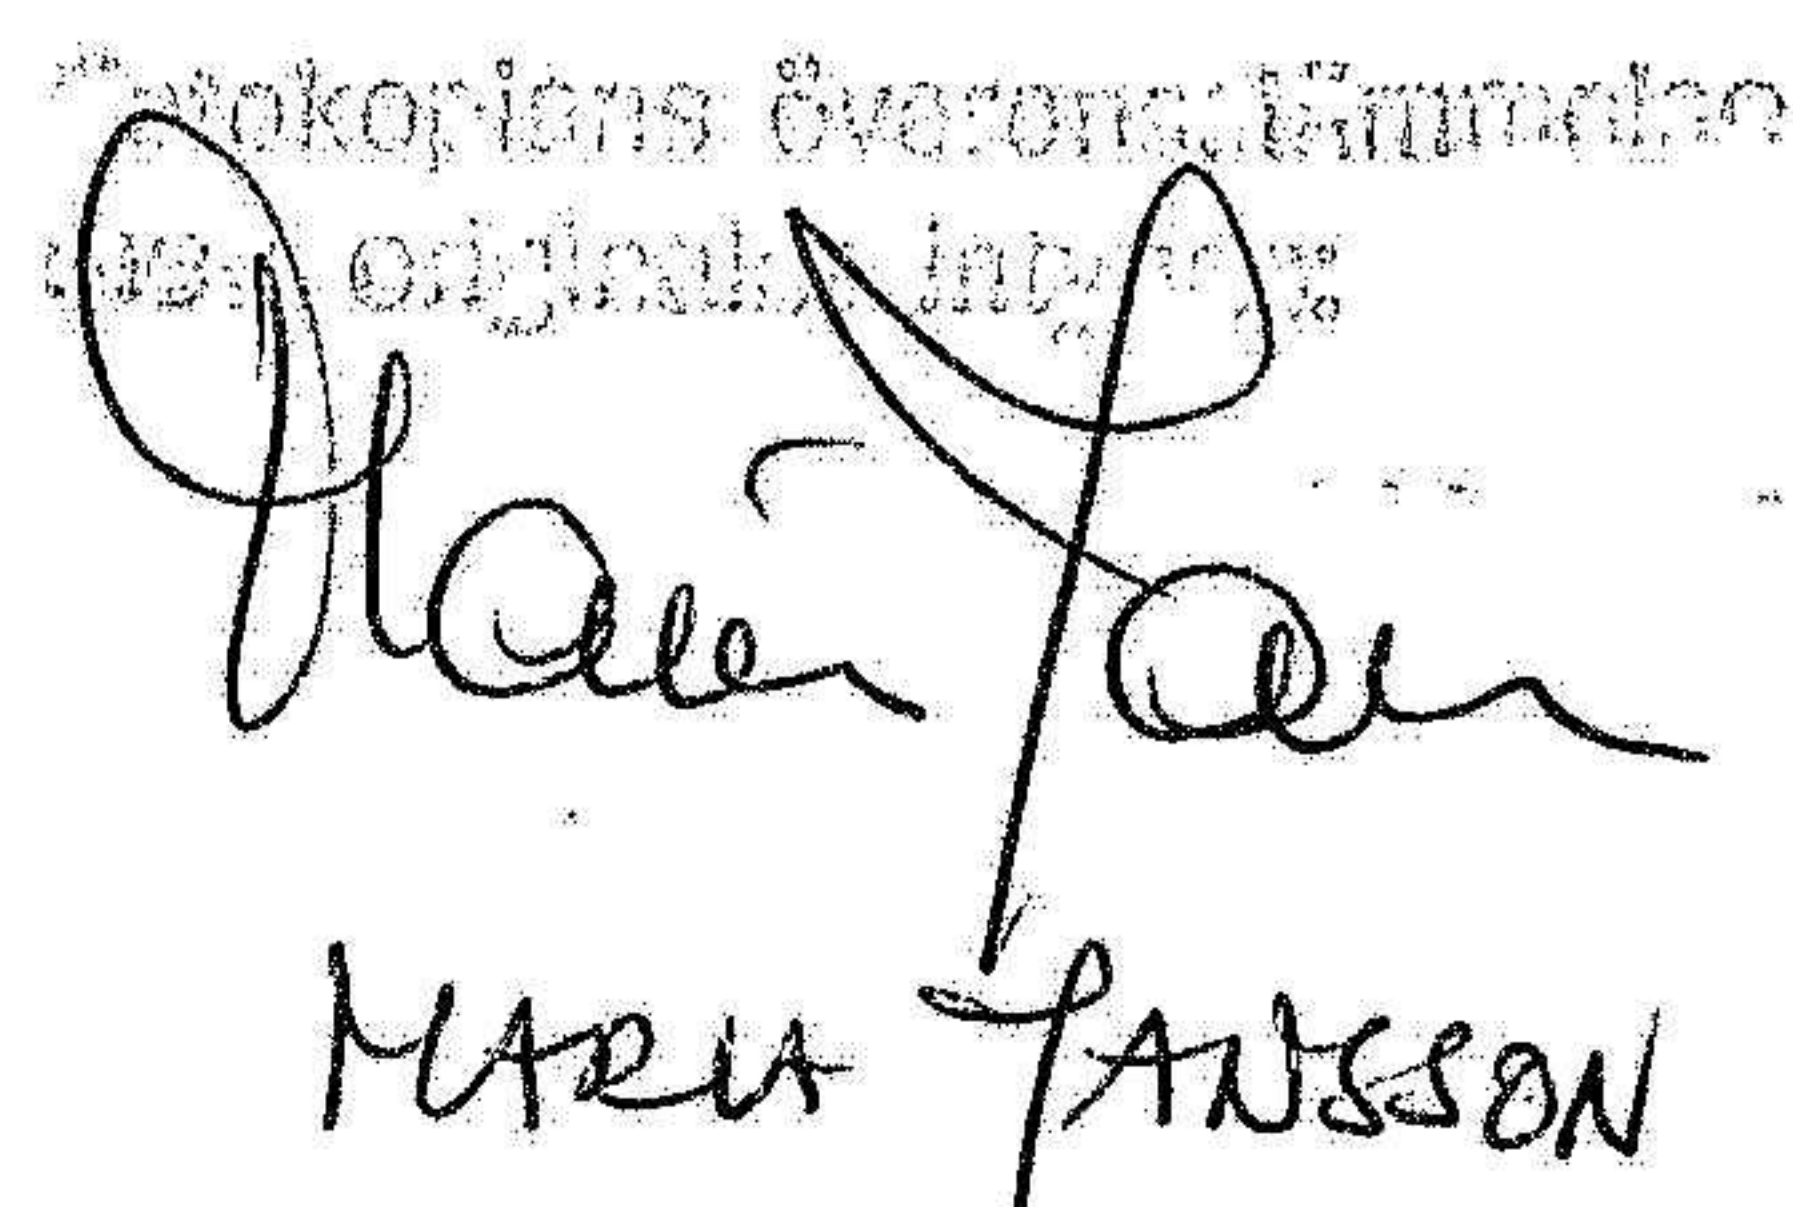 Fotokopians överensstämmelse
med originalet intygas
Maria Jansson
MARIA JANSSON